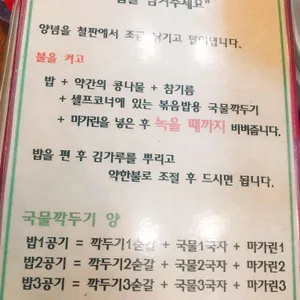 남겨주세요"
양념을 철판에서 조금 남기고 덜어냅니다.
불을 켜고
밥 + 약간의 콩나물 + 참기름
+ 셀프코너에 있는 볶음밥용 국물깍두기
+ 마가린을 넣은 후 녹을 때까지 비벼줍니다.
밥을 편 후 김가루를 뿌리고
약한불로 조절 후 드시면 됩니다.
국물깍두기 양
밥1공기 = 깍두기1숟갈 + 국물1국자 + 마가린1
밥2공기 = 깍두기2숟갈 + 국물2국자 + 마가린2
밥3공기 = 깍두기3숟갈 + 국물3국자 + 마가린3